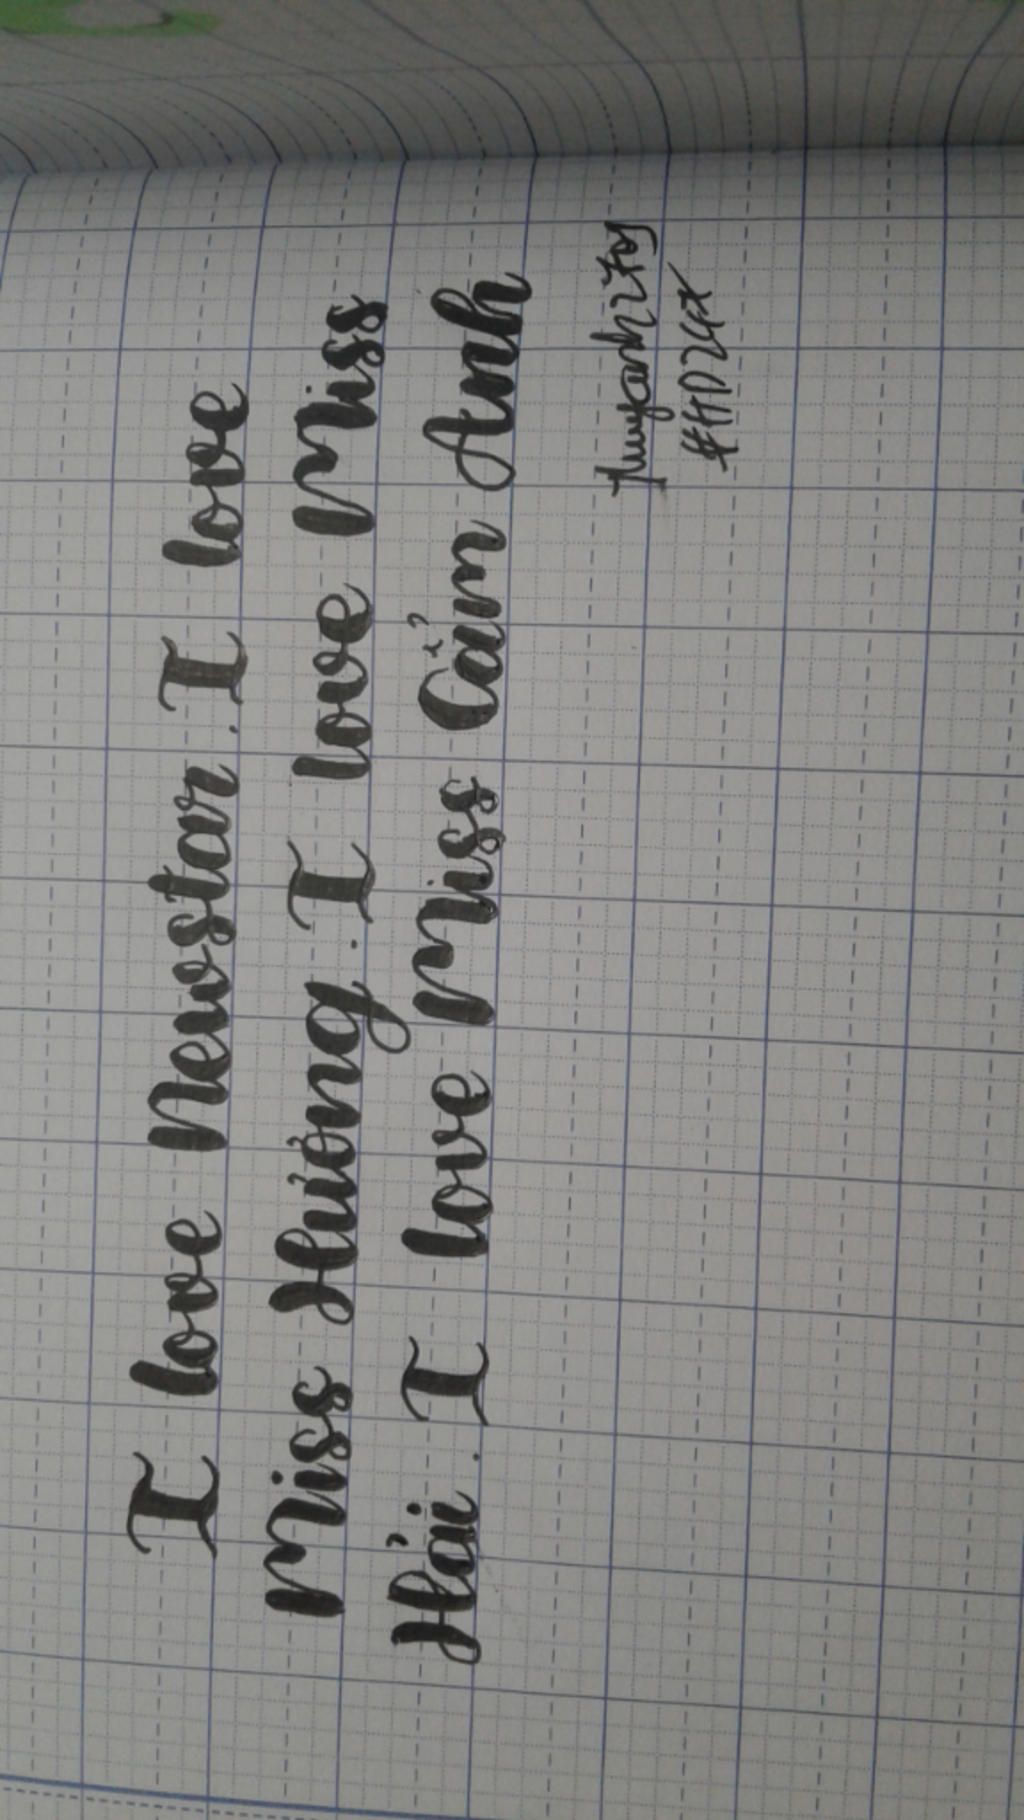 I love Newstar. I love
Miss Hương. I love Miss
Hải. I love Miss Cẩm Anh